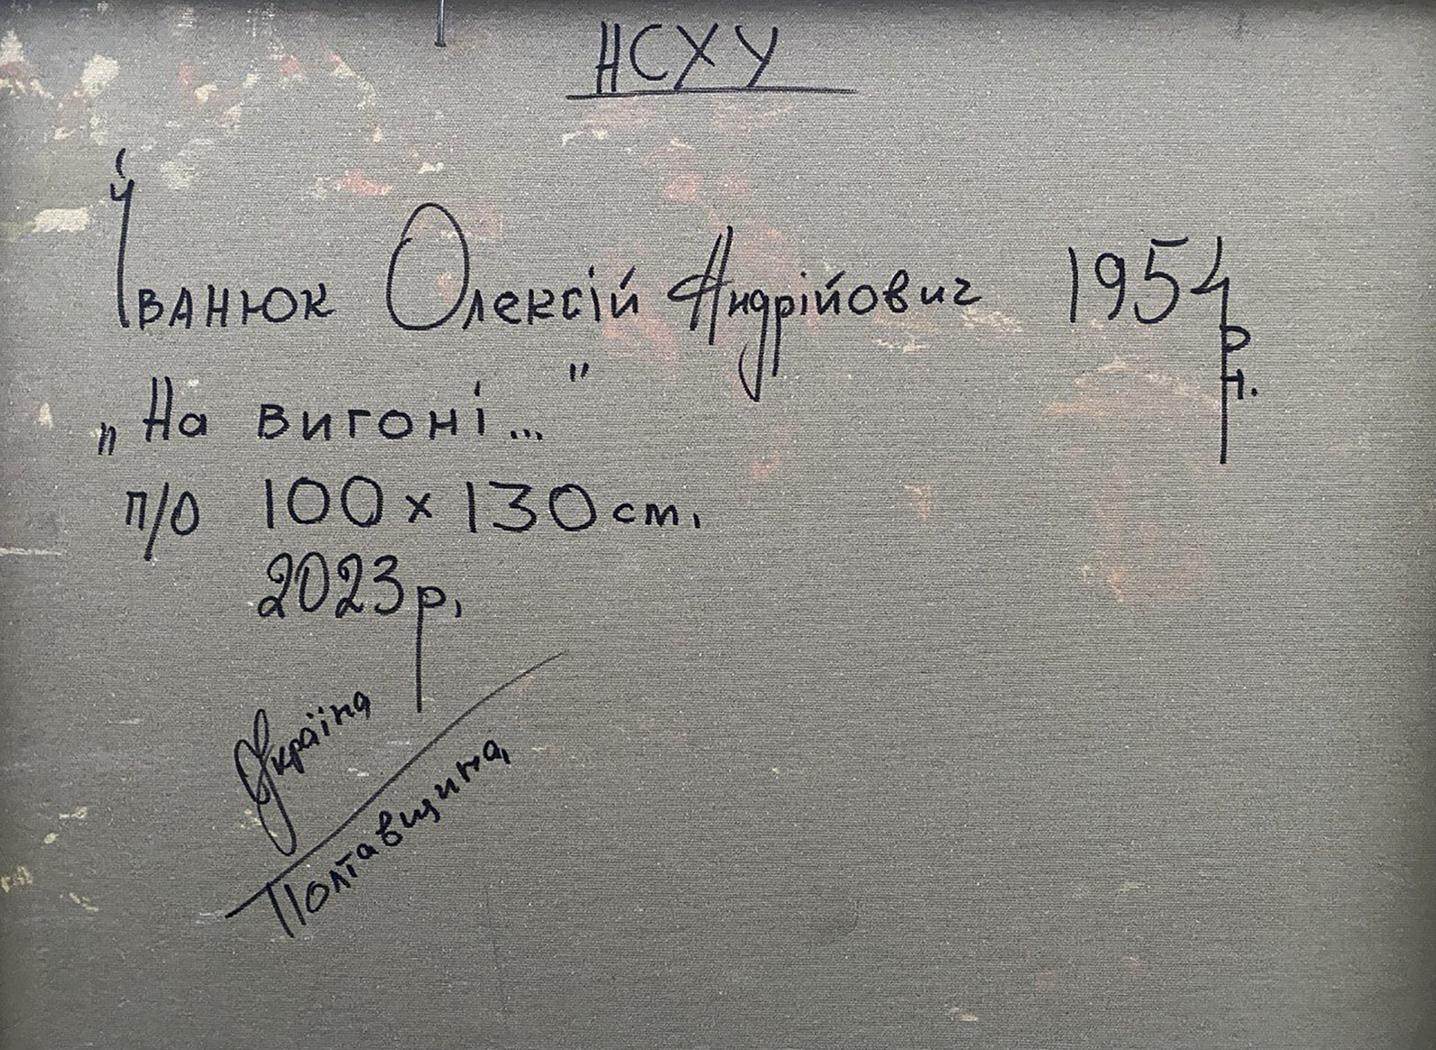 НСХУ
Іванюк Олексій Андрійович 1954 р.н.
„На вигоні..."
п/о 100 х 130 см.
2023 р.
Україна
Полтавщина